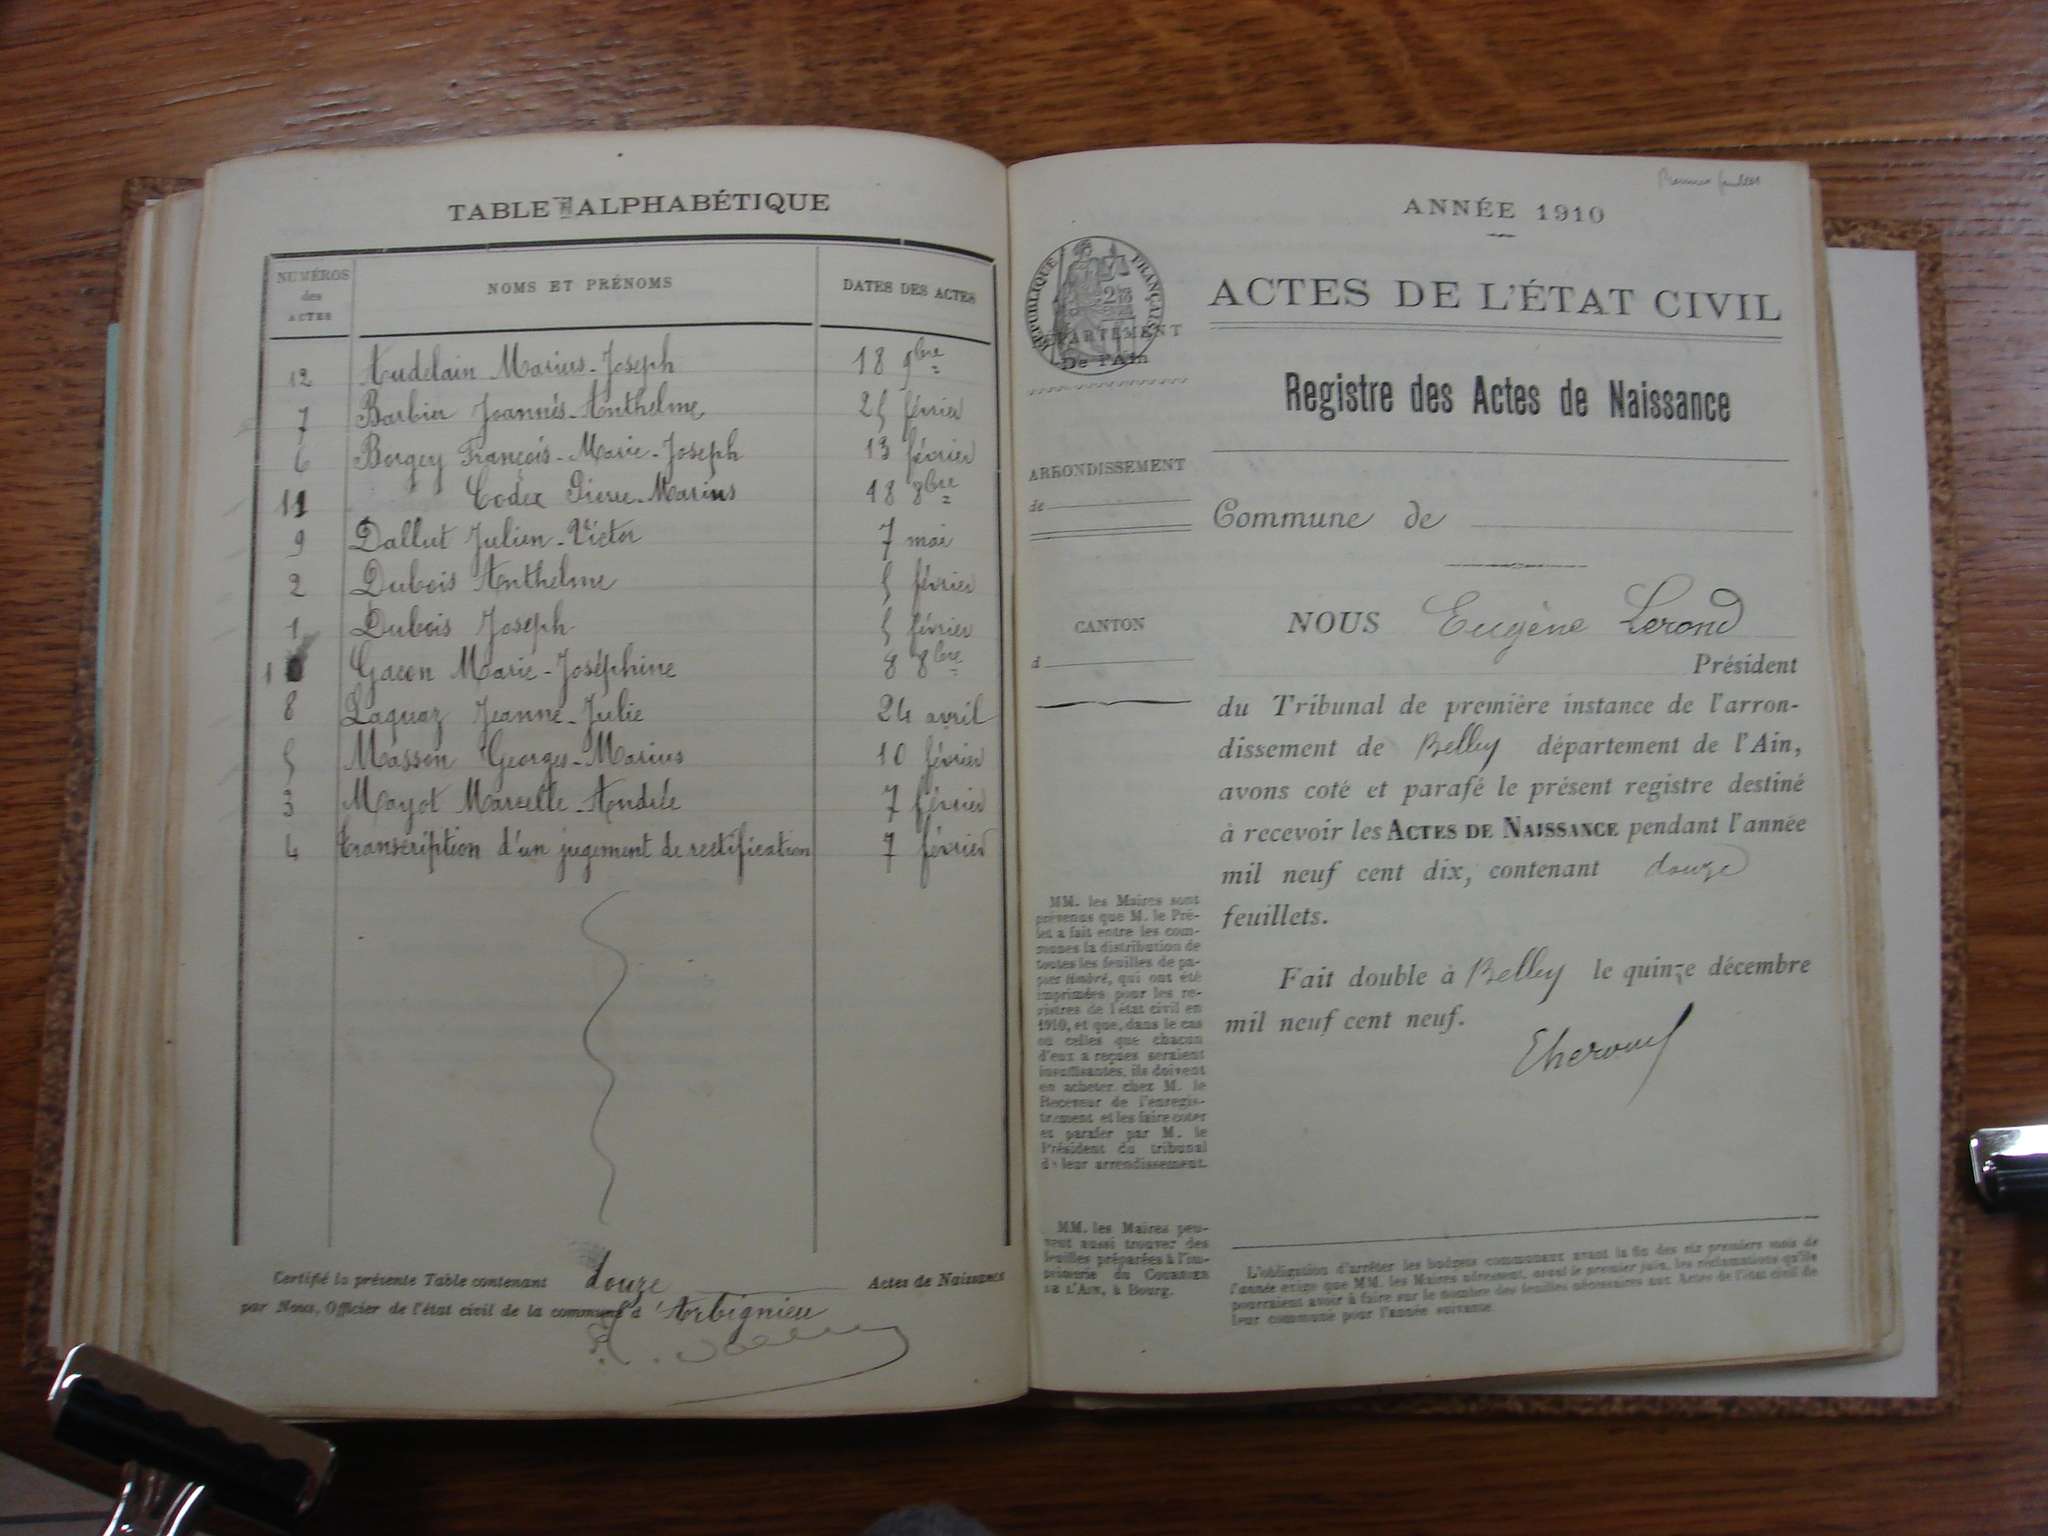 TABLE ALPHABÉTIQUE
NUMÉROS des ACTES
NOMS ET PRÉNOMS
DATES DES ACTES
12 Audelain Marius-Joseph 18 9bre
7 Barbier Joannès-Anthelme 25 février
6 Borgey François-Marie-Joseph 13 février
11 Codex Pierre-Marius 18 8bre
9 Dallut Julien-Victor 7 mai
2 Dubois Anthelme 5 février
1 Dubois Joseph 5 février
10 Gacon Marie-Joséphine 8 8bre
8 Laquaz Jeanne-Julie 24 avril
5 Masson Georges-Marius 10 février
3 Mayot Marcelle-Andrée 7 février
4 Transcription d'un jugement de rectification 7 février
Certifié la présente Table contenant douze Actes de Naissance
par Nous, Officier de l'état civil de la commune d'Arbignieu
ANNÉE 1910
RÉPUBLIQUE FRANÇAISE
DÉPARTEMENT
De l'Ain
ACTES DE L'ÉTAT CIVIL
Registre des Actes de Naissance
ARRONDISSEMENT
de
Commune de
CANTON
d
NOUS Eugène Lerond
Président
du Tribunal de première instance de l'arron-
dissement de Belley département de l'Ain,
avons coté et parafé le présent registre destiné
à recevoir les ACTES DE NAISSANCE pendant l'année
mil neuf cent dix, contenant douze
feuillets.
Fait double à Belley le quinze décembre
mil neuf cent neuf.
MM. les Maires sont
prévenus que M. le Pré-
fet a fait entre les com-
munes la distribution de
toutes les feuilles de pa-
pier timbré, qui ont été
imprimées pour les re-
gistres de l'état civil en
1910, et que, dans le cas
où celles que chacun
d'eux a reçues seraient
insuffisantes, ils doivent
en acheter chez M. le
Receveur de l'enregis-
trement et les faire coter
et parafer par M. le
Président du tribunal
de leur arrondissement.
MM. les Maires peu-
vent aussi trouver des
feuilles préparées à l'im-
primerie du COURRIER
DE L'AIN, à Bourg.
L'obligation d'arrêter les budgets communaux avant la fin des six premiers mois de
l'année exige que MM. les Maires adressent, avant le premier juin, les réclamations qu'ils
pourraient avoir à faire sur le nombre des feuilles nécessaires aux Actes de l'état civil de
leur commune pour l'année suivante.